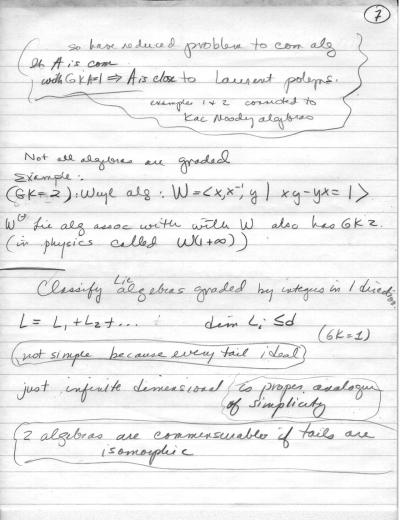 7
so have reduced problem to com alg
If A is com
with GKA=1 ⇒ A is close to Laurent polyns.
examples 1 & 2 connected to
Kac Moody algebras
Not all algebras are graded
Example:
(GK=2): Weyl alg: W=<x,x⁻¹,y | xy-yx=1>
W⁽⁻⁾ Lie alg assoc with with W also has GK 2.
(in physics called W(1+∞))
Classify Lie algebras graded by integers in 1 direction
L = L₁+L₂+... dim Lᵢ ≤ d
(GK=1)
(not simple because every tail ideal)
just infinite dimensional is proper analogue
of simplicity
2 algebras are commensurable if tails are
isomorphic